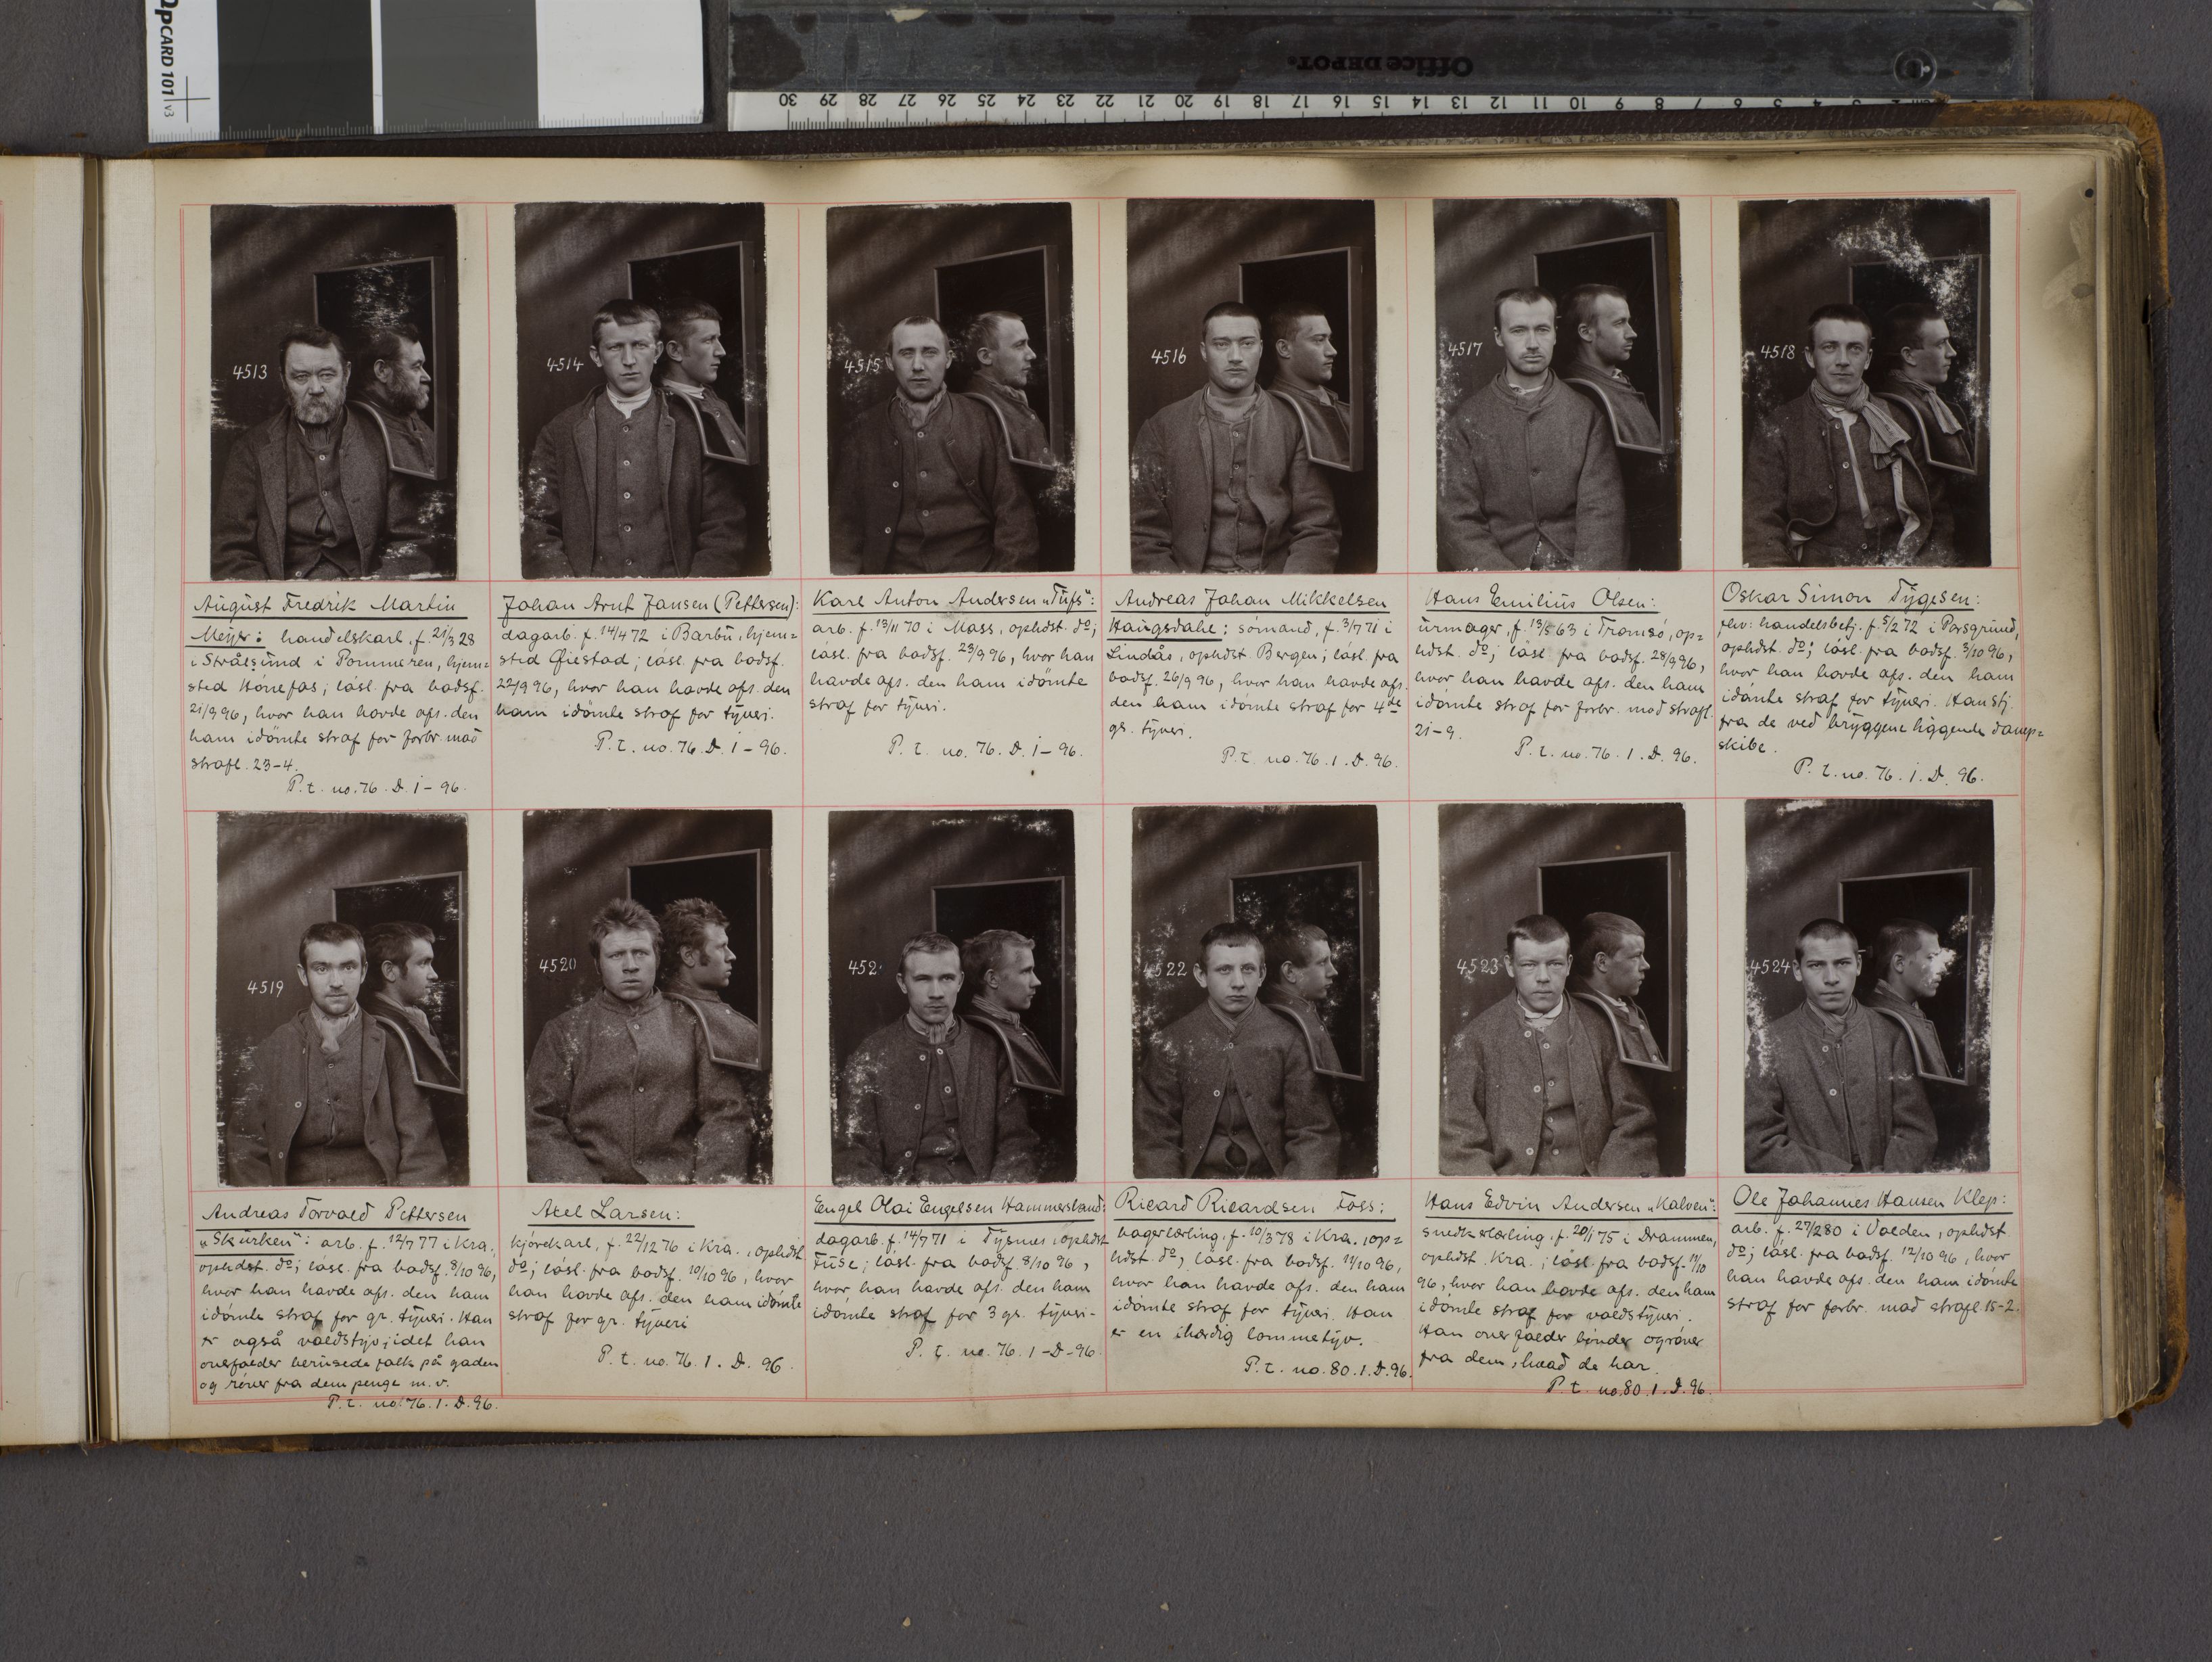 OpCARD 101 v3
Office DEPOT.
30 29 28 27 26 25 24 23 22 21 20 19 18 17 16 15 14 13 12 11 10 9 8 7 6 5 4 3 2
4513
August Fredrik Martin
Meyer: handelskarl, f. 21/3 28
i Strålsund i Pommeren, hjem=
sted Hönefos; løsl. fra bodsf.
21/9 96, hvor han havde afs. den
ham idömte straf for forbr. mod
strafl. 23-4.
P.t. no. 76. D. 1 - 96.
4514
Johan Arnt Jansen (Pettersen):
dagarb. f. 14/4 72 i Barbu, hjem=
sted Öiestad; løsl. fra bodsf.
22/9 96, hvor han havde afs. den
ham idömte straf for tyveri.
P.t. no. 76. D. 1 - 96.
4515
Karl Anton Andersen „Tufs":
arb. f. 13/11 70 i Moss, opholdst. do;
løsl. fra bodsf. 23/9 96, hvor han
havde afs. den ham idömte
straf for tyveri.
P.t. no. 76. D. 1 - 96.
4516
Andreas Johan Mikkelsen
Haugsdahl: sömand, f. 3/7 71 i
Lindås, opholdst. Bergen; løsl. fra
bodsf. 26/9 96, hvor han havde afs.
den ham idömte straf for 4de
gs. tyveri.
P.t. no. 76. 1. D. 96.
4517
Hans Emilius Olsen:
urmager, f. 13/5 63 i Tromsö, op=
hdst. do; løsl. fra bodsf. 28/9 96,
hvor han havde afs. den ham
idömte straf for forbr. mod strafl.
21-9.
P.t. no. 76. 1. D. 96.
4518
Oskar Simon Tygesen:
handelsbetj. f. 5/2 72 i Porsgrund,
opholdst. do; løsl. fra bodsf. 3/10 96,
hvor han havde afs. den ham
idömte straf for tyveri. Han stj.
fra de ved bryggene liggende damp=
skibe.
P.t. no. 76. 1. D. 96.
4519
Andreas Torvald Pettersen
„Skurken": arb. f. 12/7 77 i Kra.,
opholdst. do; løsl. fra bodsf. 8/10 96,
hvor han havde afs. den ham
idömte straf for gr. tyveri. Han
er også voldstyv, idet han
overfalder berusede folk på gaden
og röver fra dem penge m.v.
P.t. no. 76. 1. D. 96.
4520
Axel Larsen:
kjörekarl, f. 22/12 76 i Kra., opholdst
do; løsl. fra bodsf. 10/10 96, hvor
han havde afs. den ham idömte
straf for gr. tyveri
P.t. no. 76. 1. D. 96.
452
Engel Olai Engelsen Hammersland:
dagarb. f. 14/7 71 i Tysnes, opholdst
Fuse; løsl. fra bodsf. 9/10 96,
hvor han havde afs. den ham
idömte straf for 3 gs. tyveri-
P.t. no. 76. 1 - D - 96.
4522
Rikard Rikardsen Foss:
bagerlærling, f. 10/3 78 i Kra., op=
hdst. do, løsl. fra bodsf. 11/10 96,
hvor han havde afs. den ham
idömte straf for tyveri. Han
er en ihærdig lommetyv.
P.t. no. 80. 1. D. 96.
4523
Hans Edvin Andersen „Kalven":
snedkerlærling, f. 20/1 75 i Drammen,
opholdst. Kra.; løsl. fra bodsf. 11/10
96, hvor han havde afs. den ham
idömte straf for voldstyveri.
Han overfalder bönder og röver
fra dem, hvad de har.
P.t. no. 80. 1. D. 96.
4524
Ole Johannes Hansen Klep:
arb. f. 27/2 80 i Volden, opholdst
do; løsl. fra bodsf. 12/10 96, hvor
han havde afs. den ham idömte
straf for forbr. mod strafl. 15-2.